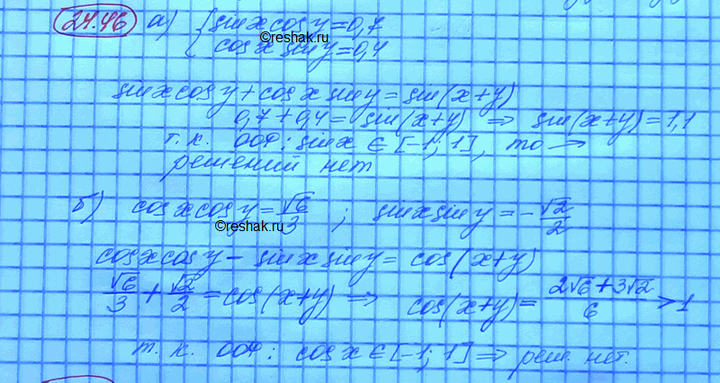 24.46 а) { sin x cos y = 0,7
©reshak.ru
cos x sin y = 0,4
sin x cos y + cos x sin y = sin(x+y)
0,7 + 0,4 = sin(x+y) ⇒ sin(x+y) = 1,1
т.к. ООФ: sin x ∈ [-1; 1], то →
решений нет
б) cos x cos y = √6/3 ; sin x sin y = -√2/2
©reshak.ru
cos x cos y - sin x sin y = cos(x+y)
√6/3 + √2/2 = cos(x+y) ⇒ cos(x+y) = (2√6+3√2)/6 > 1
т.к. ООФ: cos x ∈ [-1; 1] ⇒ реш. нет.